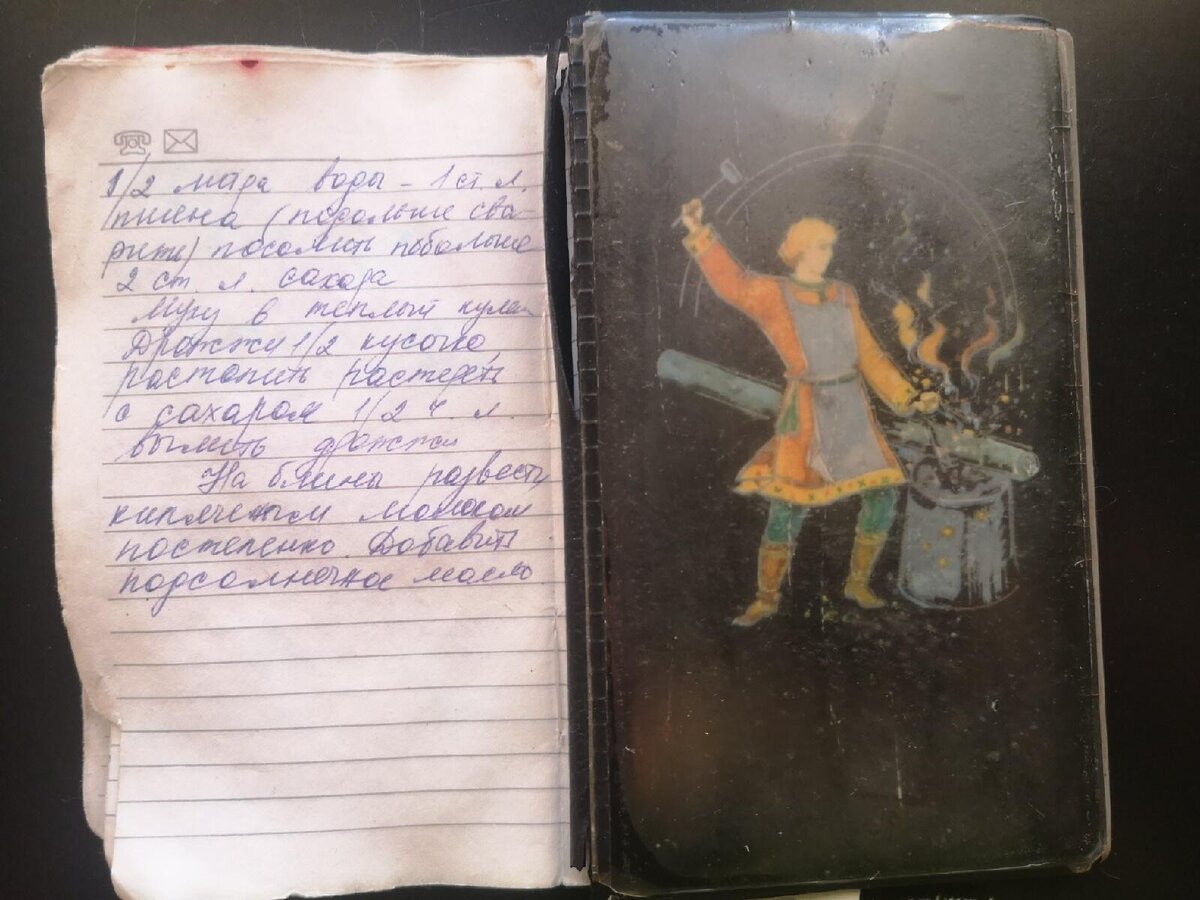 1/2 мара воды - 1 ст. л.
пшена (подольше сва-
рить) посолить побольше
2 ст. л. сахара
Муку в теплый кулеш
Дрожжи 1/2 кусочка,
растопить растереть
с сахаром 1/2 ч. л.
вылить дрожжи
На блины развести
кипяченым молоком
постепенно. Добавить
подсолнечное масло